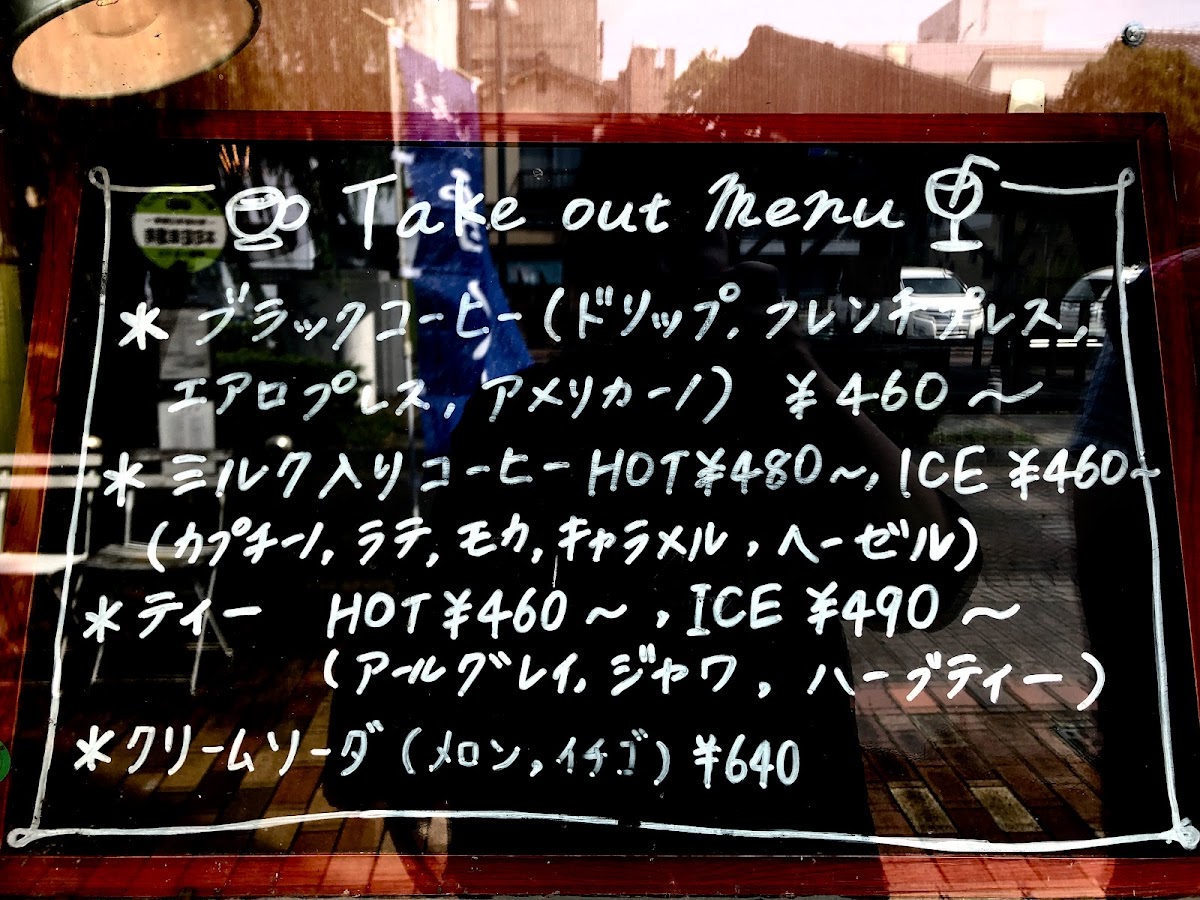 Take out Menu
* ブラックコーヒー(ドリップ, フレンチプレス,
エアロプレス, アメリカーノ) ¥460～
* ミルク入りコーヒー HOT ¥480～, ICE ¥460～
(カプチーノ, ラテ, モカ, キャラメル, ヘーゼル)
* ティー HOT ¥460～, ICE ¥490～
(アールグレイ, ジャワ, ハーブティー)
* クリームソーダ (メロン, イチゴ) ¥640